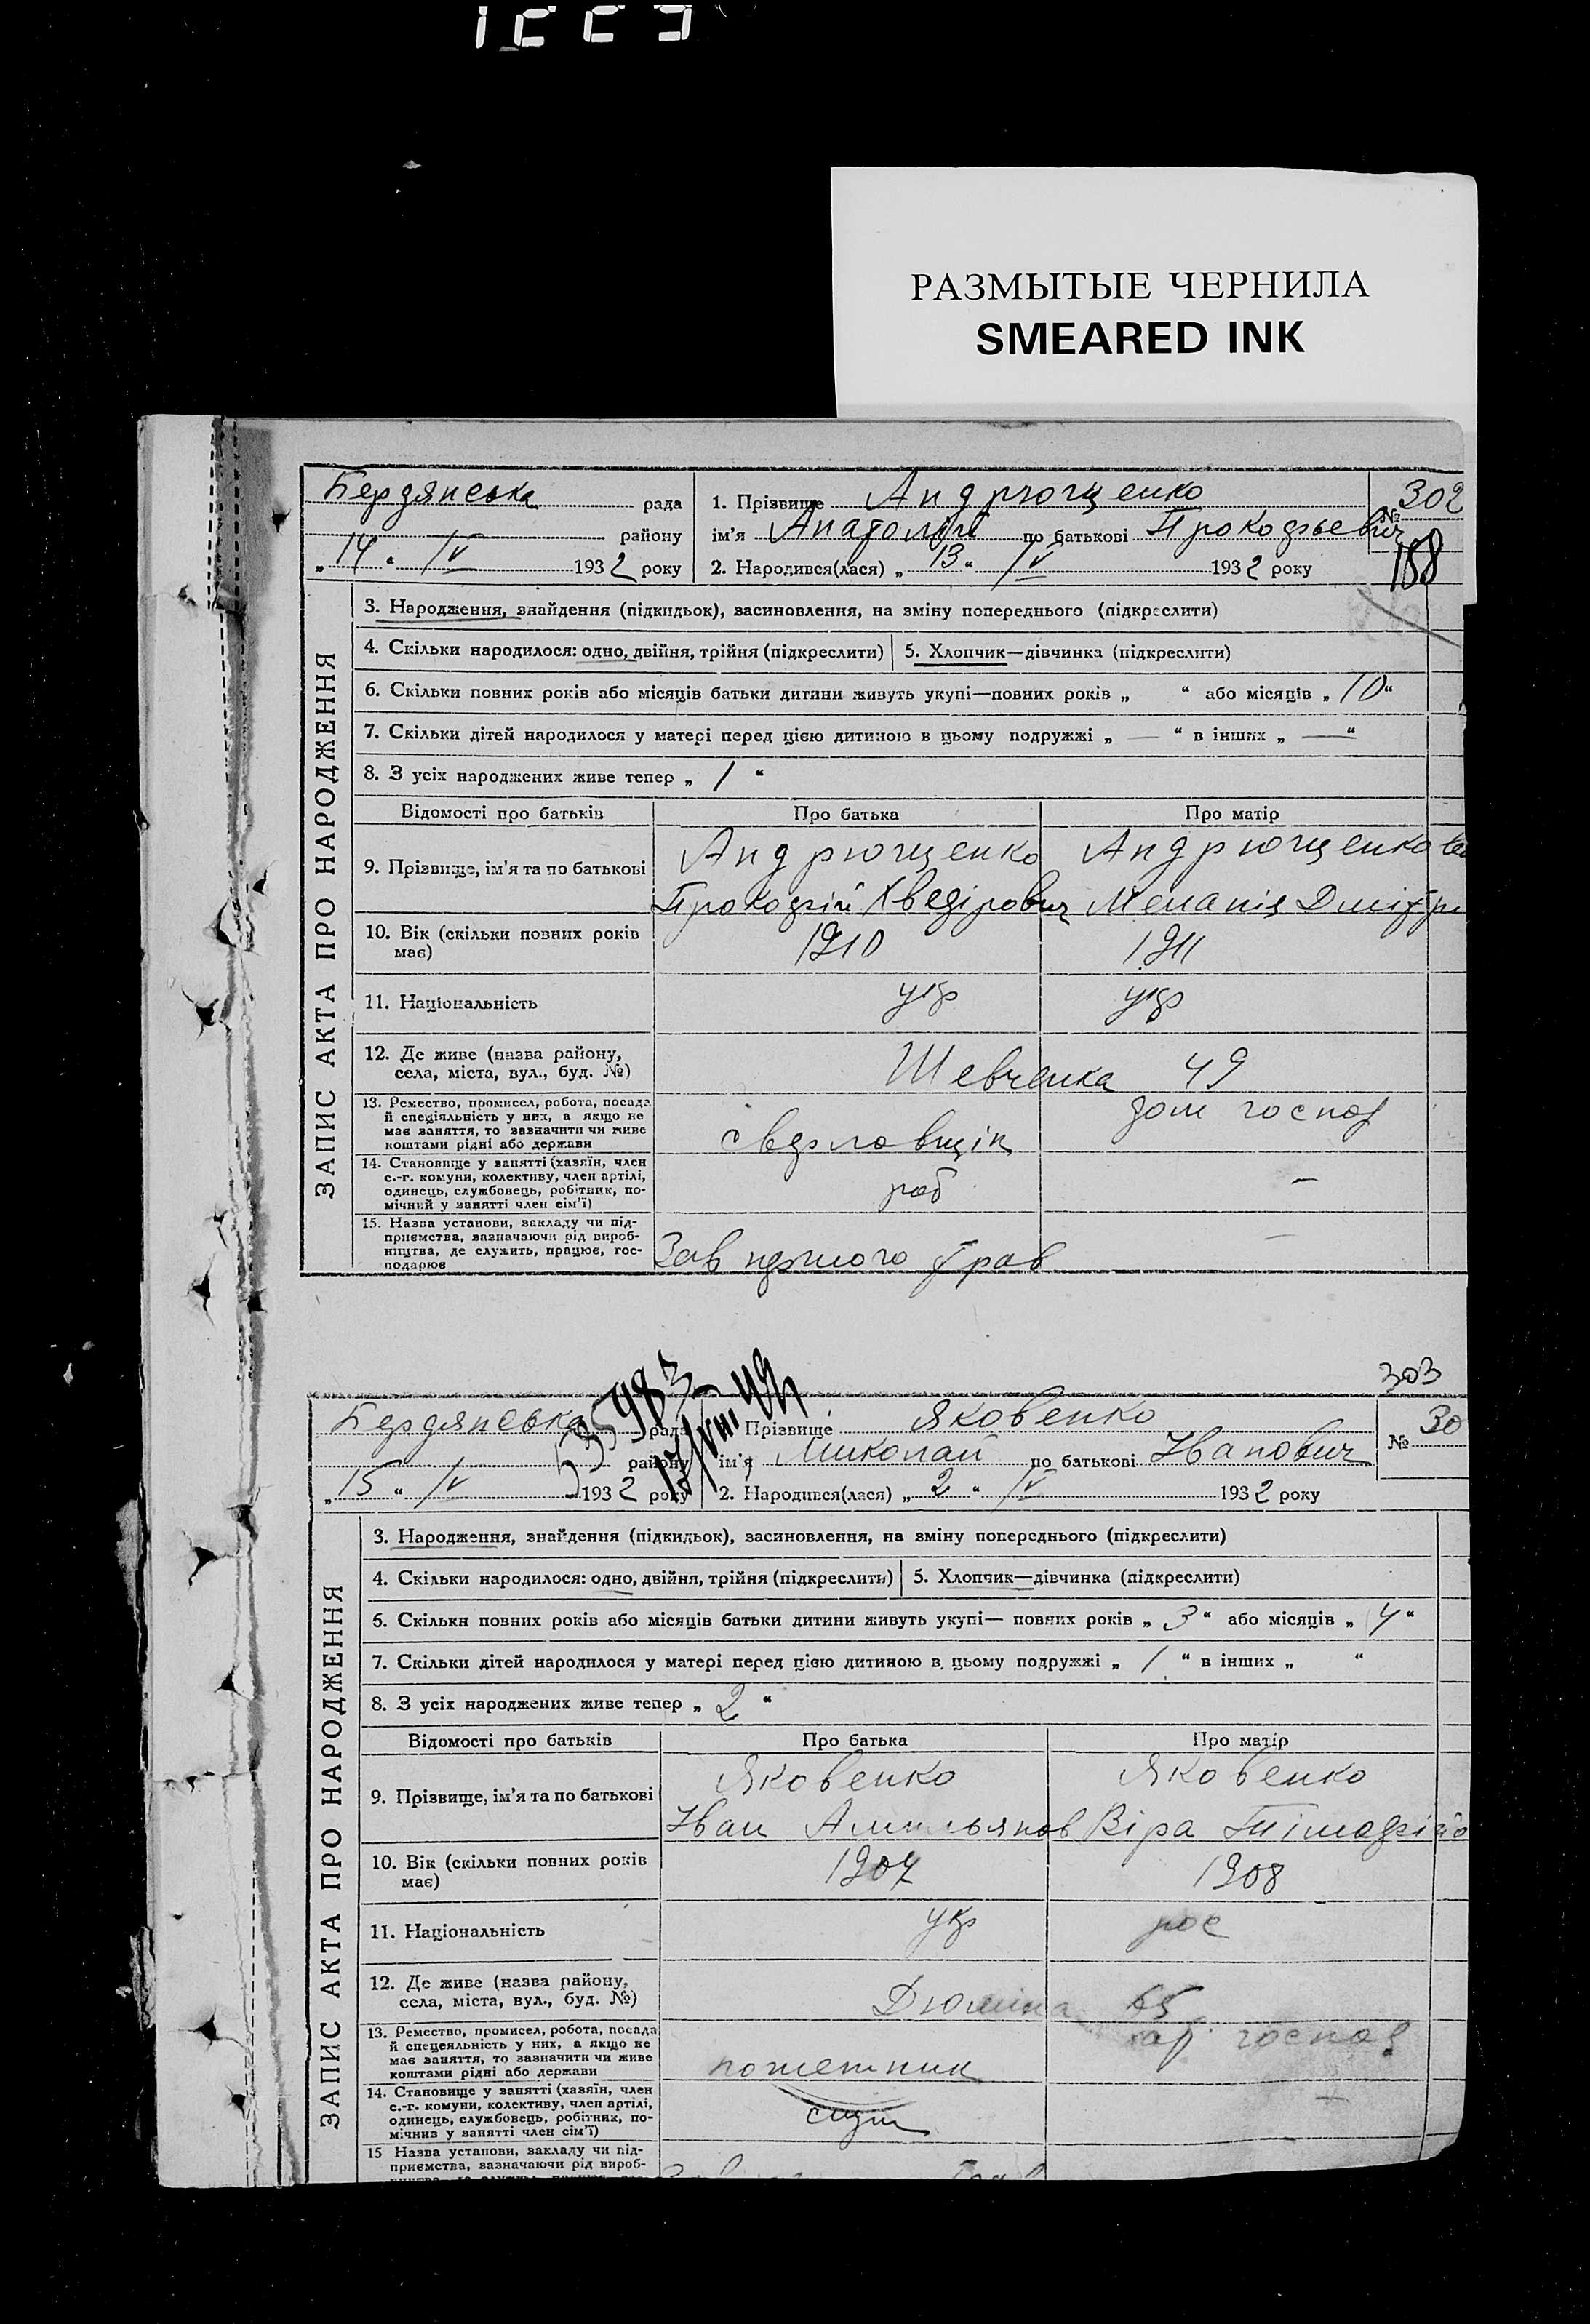 РАЗМЫТЫЕ ЧЕРНИЛА
SMEARED INK
Бердянська рада
району
„14“ IV 1932 року
1. Прізвище Андрющенко
ім'я Анатолій по батькові Прокофьевич
2. Народився(лася) „13“ IV 1932 року
302
№
188
ЗАПИС АКТА ПРО НАРОДЖЕННЯ
3. Народження, знайдення (підкидьок), засиновлення, на зміну попереднього (підкреслити)
4. Скільки народилося: одно, двійня, трійня (підкреслити) 5. Хлопчик—дівчинка (підкреслити)
6. Скільки повних років або місяців батьки дитини живуть укупі—повних років „ “ або місяців „10“
7. Скільки дітей народилося у матері перед цією дитиною в цьому подружжі „—“ в інших „—“
8. З усіх народжених живе тепер „1“
Відомості про батьків Про батька Про матір
9. Прізвище, ім'я та по батькові
Андрющенко Андрющенкова
Прокофій Хведірович Меланія Дмітр
10. Вік (скільки повних років має) 1910 1911
11. Національність укр укр
12. Де живе (назва району, села, міста, вул., буд. №) Шевченка 49
13. Ремество, промисел, робота, посада
й спеціяльність у них, а якщо не
має заняття, то зазначити чи живе
коштами рідні або держави
свєрловщік дом господ
14. Становище у занятті (хазяїн, член
с.-г. комуни, колективу, член артілі,
одинець, службовець, робітник, по-
мічний у занятті член сім'ї)
роб —
15. Назва установи, закладу чи під-
приємства, зазначаючи рід вироб-
ництва, де служить, працює, гос-
подарює
Зав першого трав —
303
535983
17/VIII 49
Бердянська рада
району
„15“ IV 1932 року
Прізвище Яковенко
ім'я Миколай по батькові Іванович
2. Народився(лася) „2“ IV 1932 року
№ 30
ЗАПИС АКТА ПРО НАРОДЖЕННЯ
3. Народження, знайдення (підкидьок), засиновлення, на зміну попереднього (підкреслити)
4. Скільки народилося: одно, двійня, трійня (підкреслить) 5. Хлопчик—дівчинка (підкреслити)
6. Скільки повних років або місяців батьки дитини живуть укупі— повних років „3“ або місяців „4“
7. Скільки дітей народилося у матері перед цією дитиною в цьому подружжі „1“ в інших „ “
8. З усіх народжених живе тепер „2“
Відомості про батьків Про батька Про матір
9. Прізвище, ім'я та по батькові
Яковенко Яковенко
Іван Амильянов Віра Тімофіїо
10. Вік (скільки повних років має) 1907 1908
11. Національність укр рос
12. Де живе (назва району, села, міста, вул., буд. №) Дюміна 65
13. Ремество, промисел, робота, посада
й спецеяльність у них, а якщо не
має заняття, то зазначити чи живе
коштами рідні або держави
господ
14. Становище у занятті (хазяїн, член
с.-г. комуни, колективу, член артілі,
одинець, службовець, робітник, по-
мічнив у занятті член сім'ї)
служ —
15 Назва установи, закладу чи під-
приємства, зазначаючи рід вироб-